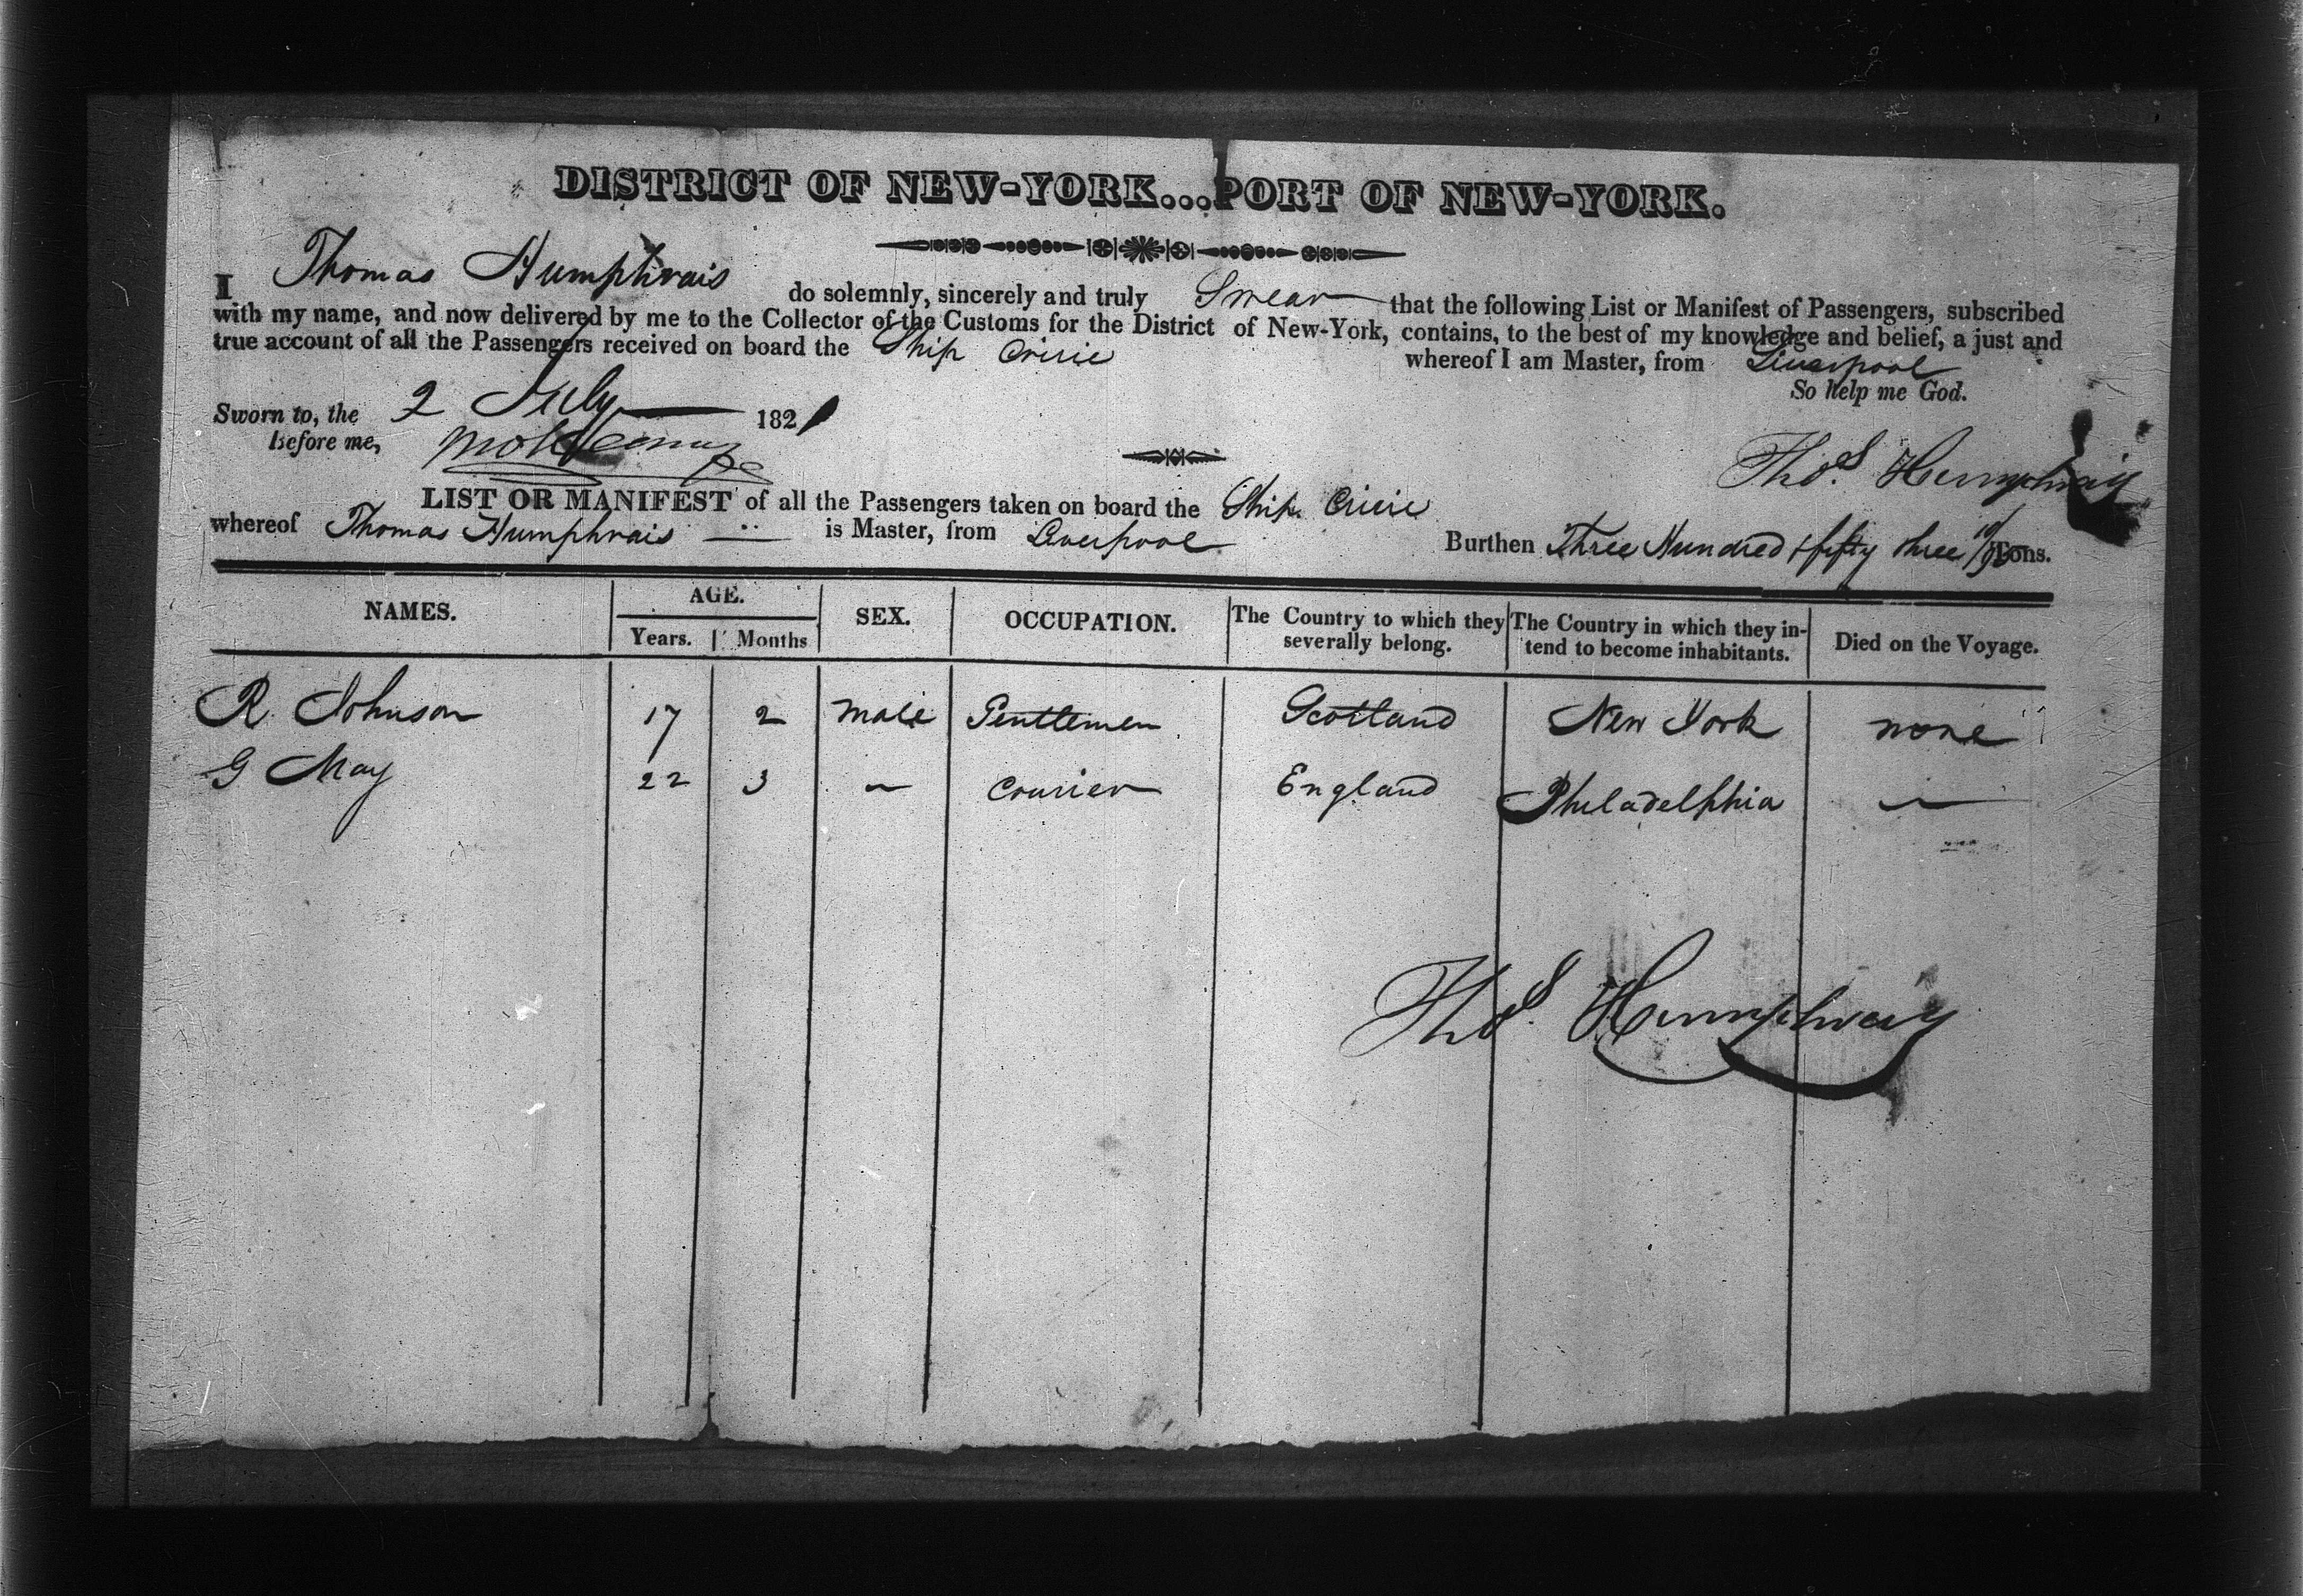 DISTRICT OF NEW-YORK...PORT OF NEW-YORK.
I Thomas Humphrais do solemnly, sincerely and truly Swear that the following List or Manifest of Passengers, subscribed
with my name, and now delivered by me to the Collector of the Customs for the District of New-York, contains, to the best of my knowledge and belief, a just and
true account of all the Passengers received on board the Ship whereof I am Master, from Liverpool
So help me God.
Sworn to, the 2 July 1821
before me,
Thos. Humphrais
LIST OR MANIFEST of all the Passengers taken on board the Ship
whereof Thomas Humphrais is Master, from Liverpool Burthen Three Hundred & fifty three Tons.
NAMES. AGE. SEX. OCCUPATION. The Country to which they severally belong. The Country in which they intend to become inhabitants. Died on the Voyage.
Years. Months
R. Johnson 17 2 male Gentlemen Scotland New York none
G May 22 3 — Courier England Philadelphia —
Thos. Humphrais